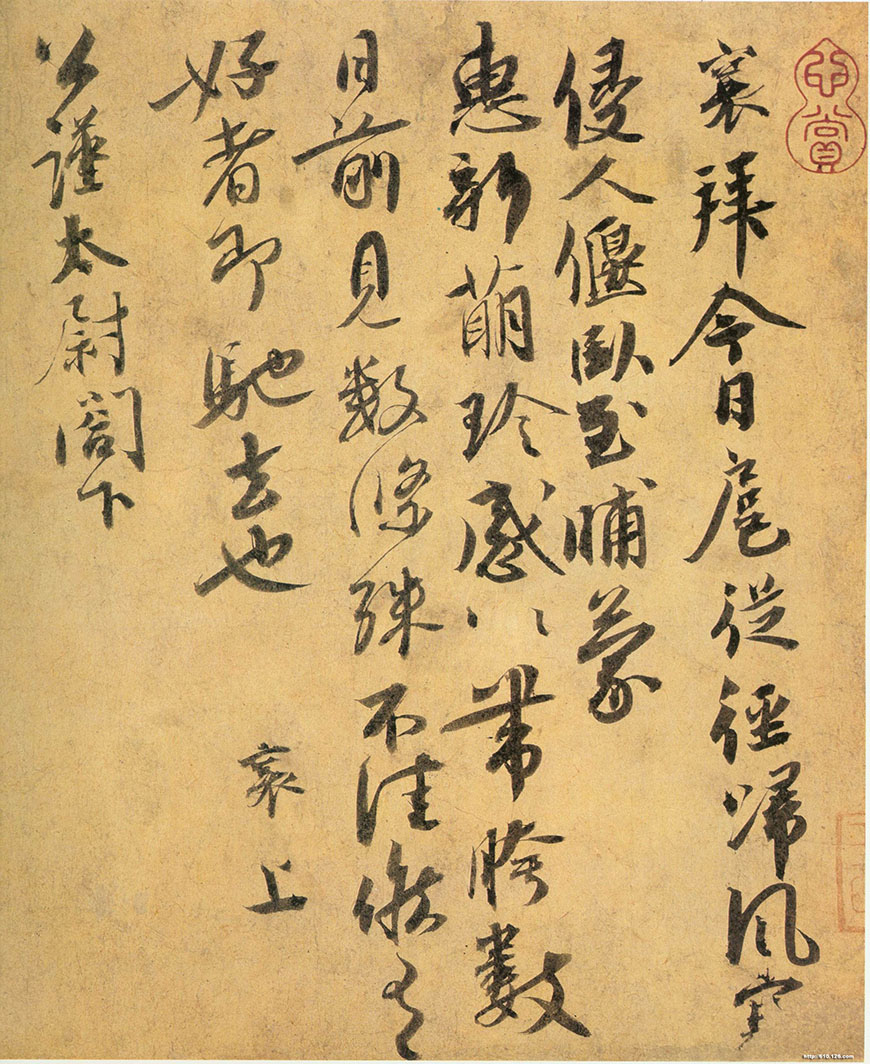 襄拜今日扈從徑歸風寒
侵人偃臥至晡蒙
惠新萌珍感〻帶胯數
日前見数條殊不佳候有
好者即馳去也
襄上
公謹太尉閣下
賞